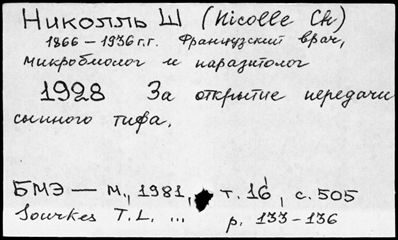 Николль Ш (Nicolle Ch)
1866 – 1936 г.г. Французский врач,
микробиолог и паразитолог
1928 За открытие передачи
сыпного тифа.
БМЭ — М., 1981, т. 16, с. 505
Sourkes T. L. ... p. 133-136